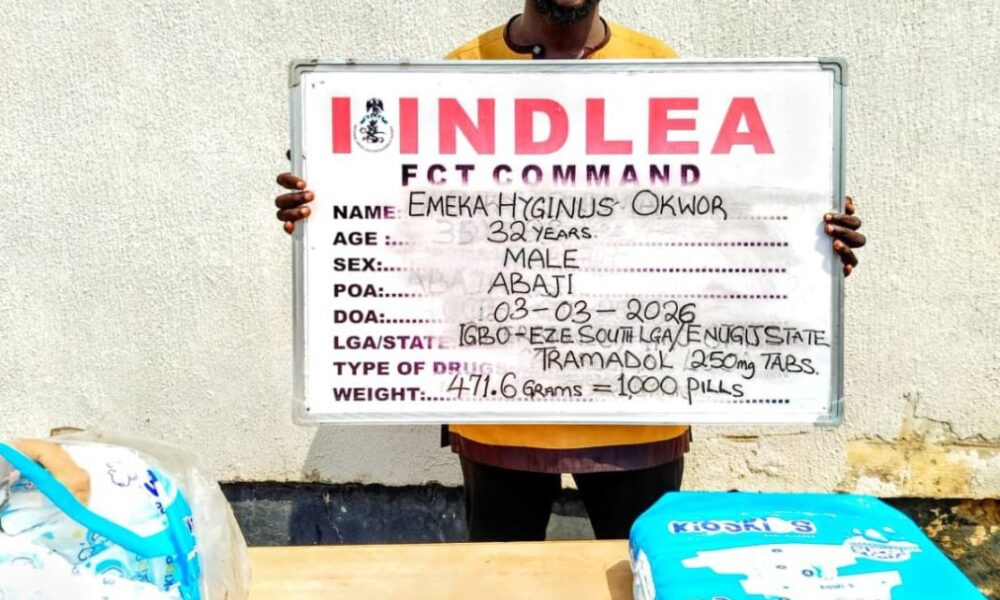 NDLEA
FCT COMMAND
NAME: EMEKA HYGINUS OKWOR
AGE :.... 32 YEARS.
SEX:.... MALE
POA:.... ABAJI
DOA:.... 03-03-2026
LGA/STATE IGBO-EZE SOUTH LGA/ENUGU STATE
TYPE OF DRUGS TRAMADOL 250mg TABS.
WEIGHT:.... 471.6 GRAMS = 1,000 PILLS
KiOSKiDS